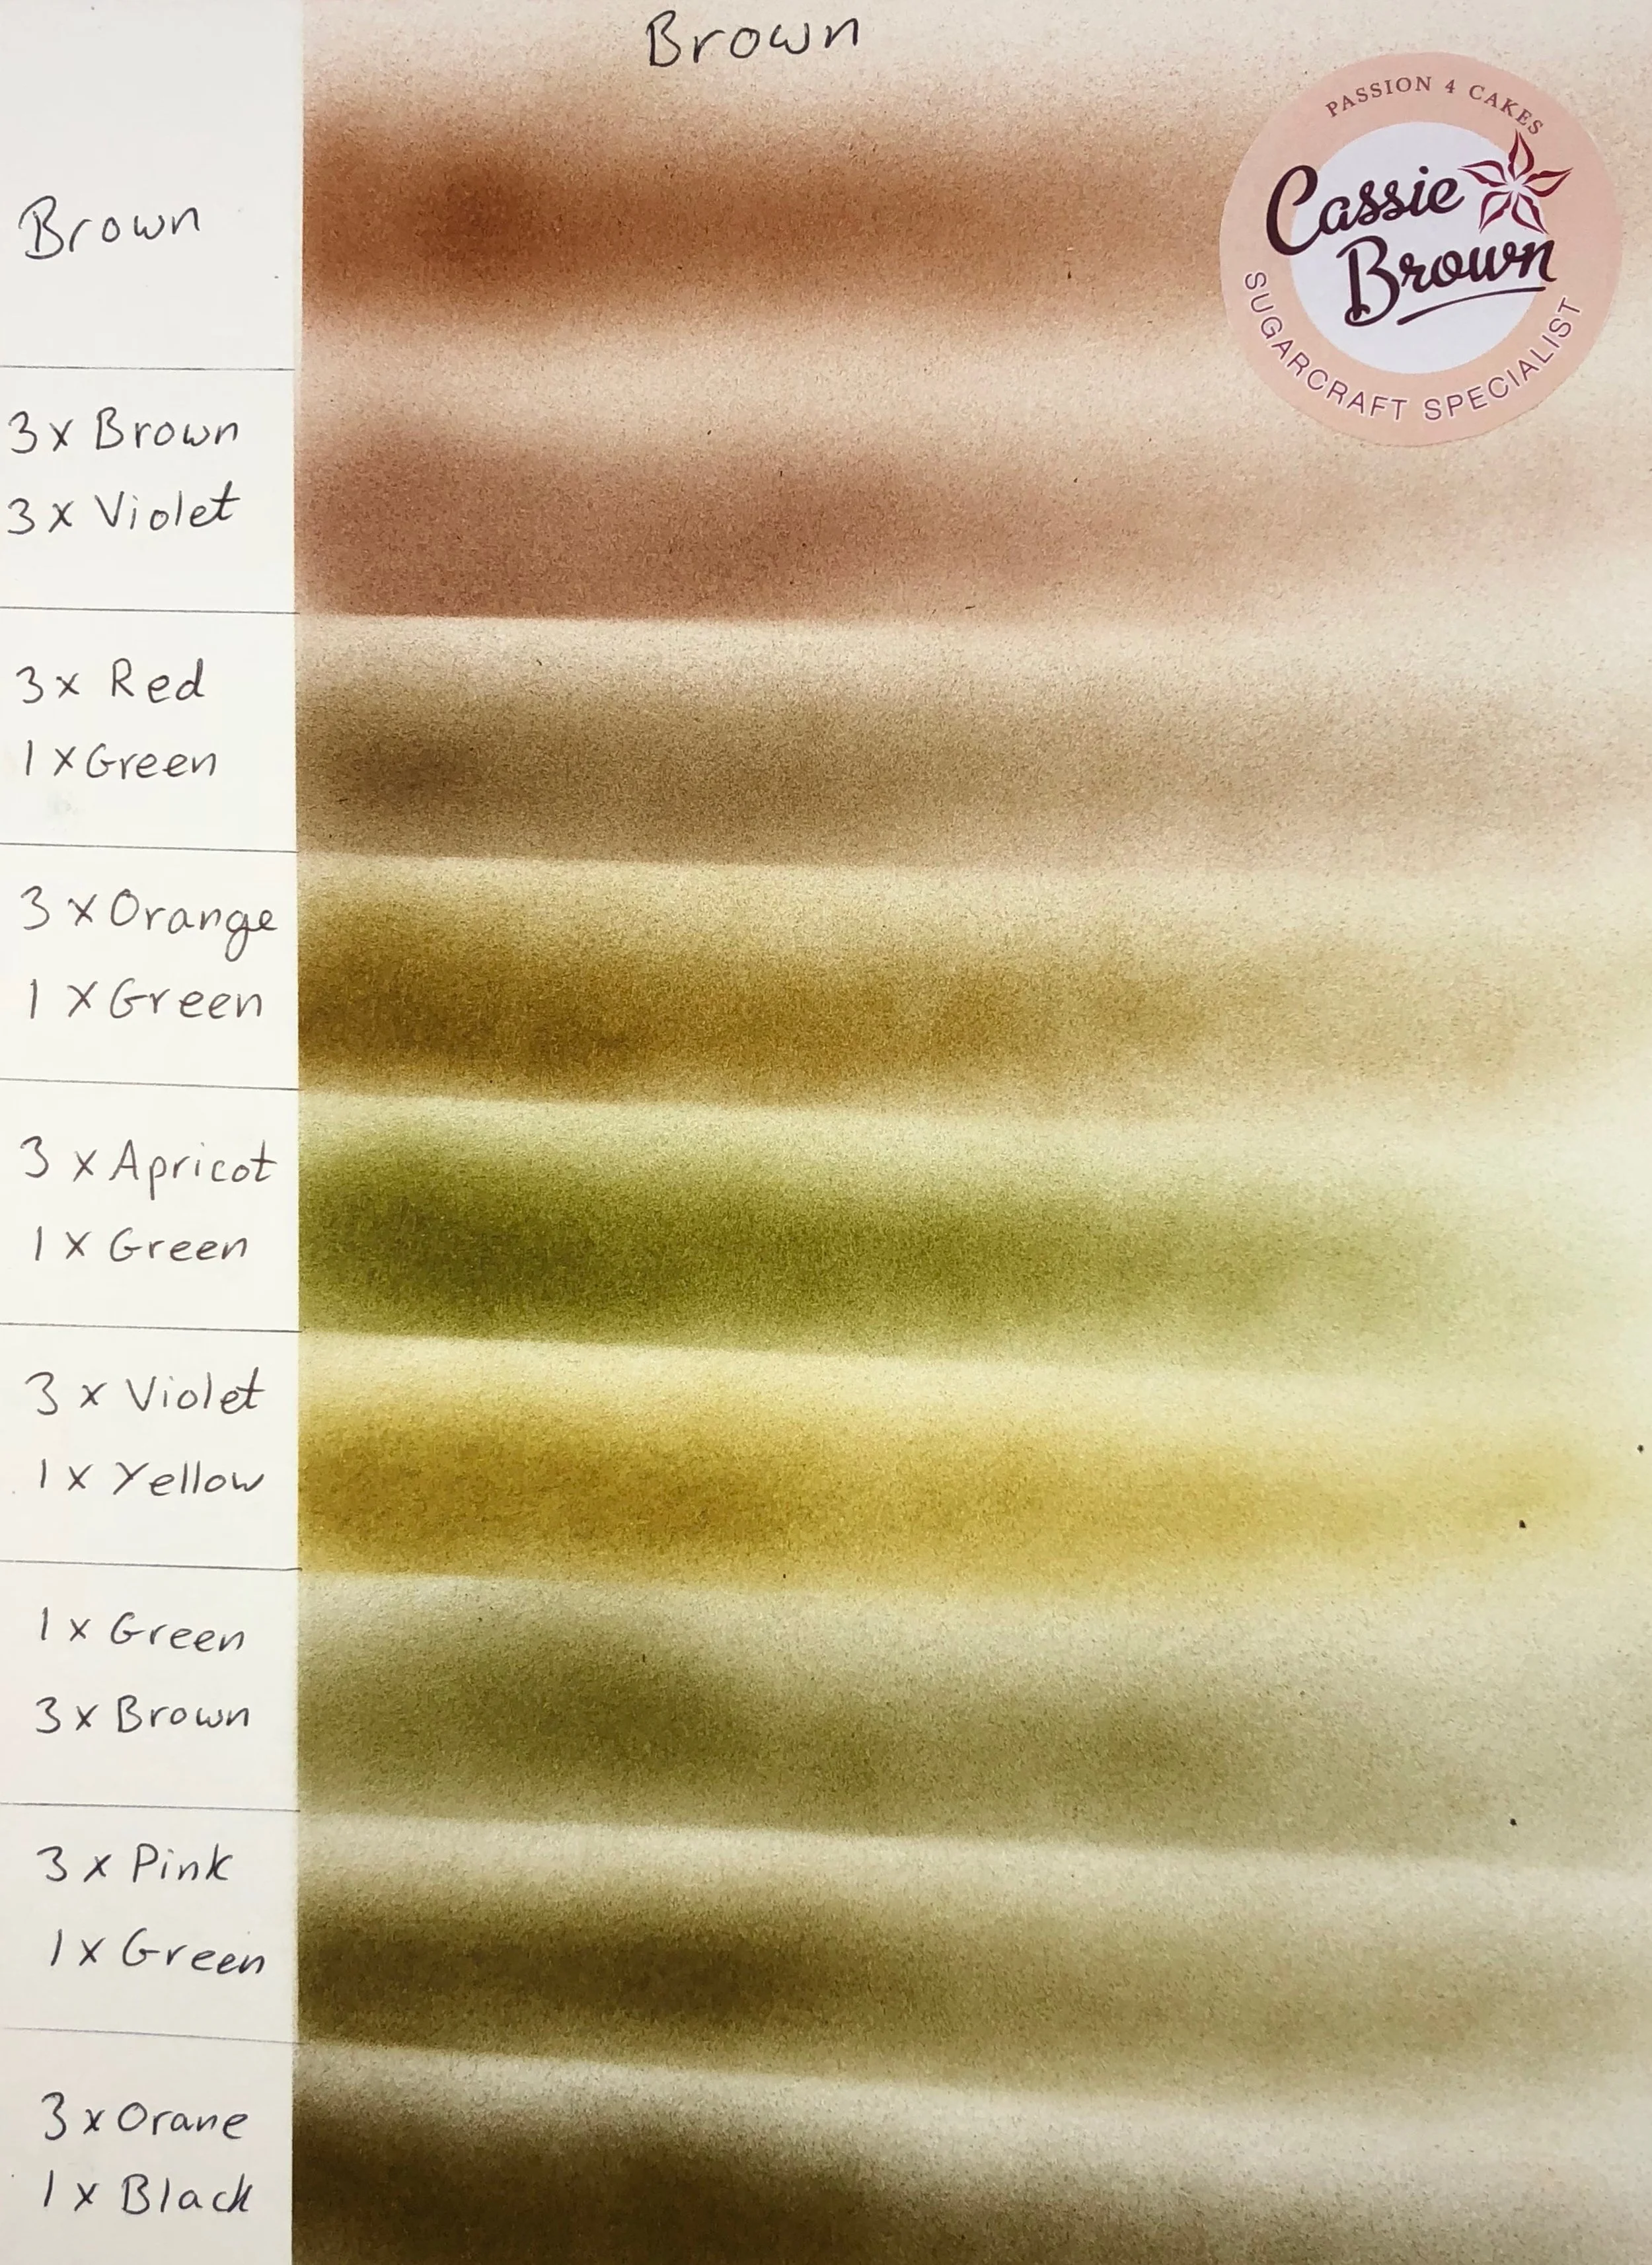 Brown
PASSION 4 CAKES
Cassie
Brown
SUGARCRAFT SPECIALIST
Brown
3x Brown
3x Violet
3x Red
1x Green
3x Orange
1x Green
3x Apricot
1x Green
3x Violet
1x Yellow
1x Green
3x Brown
3x Pink
1x Green
3x Orane
1x Black